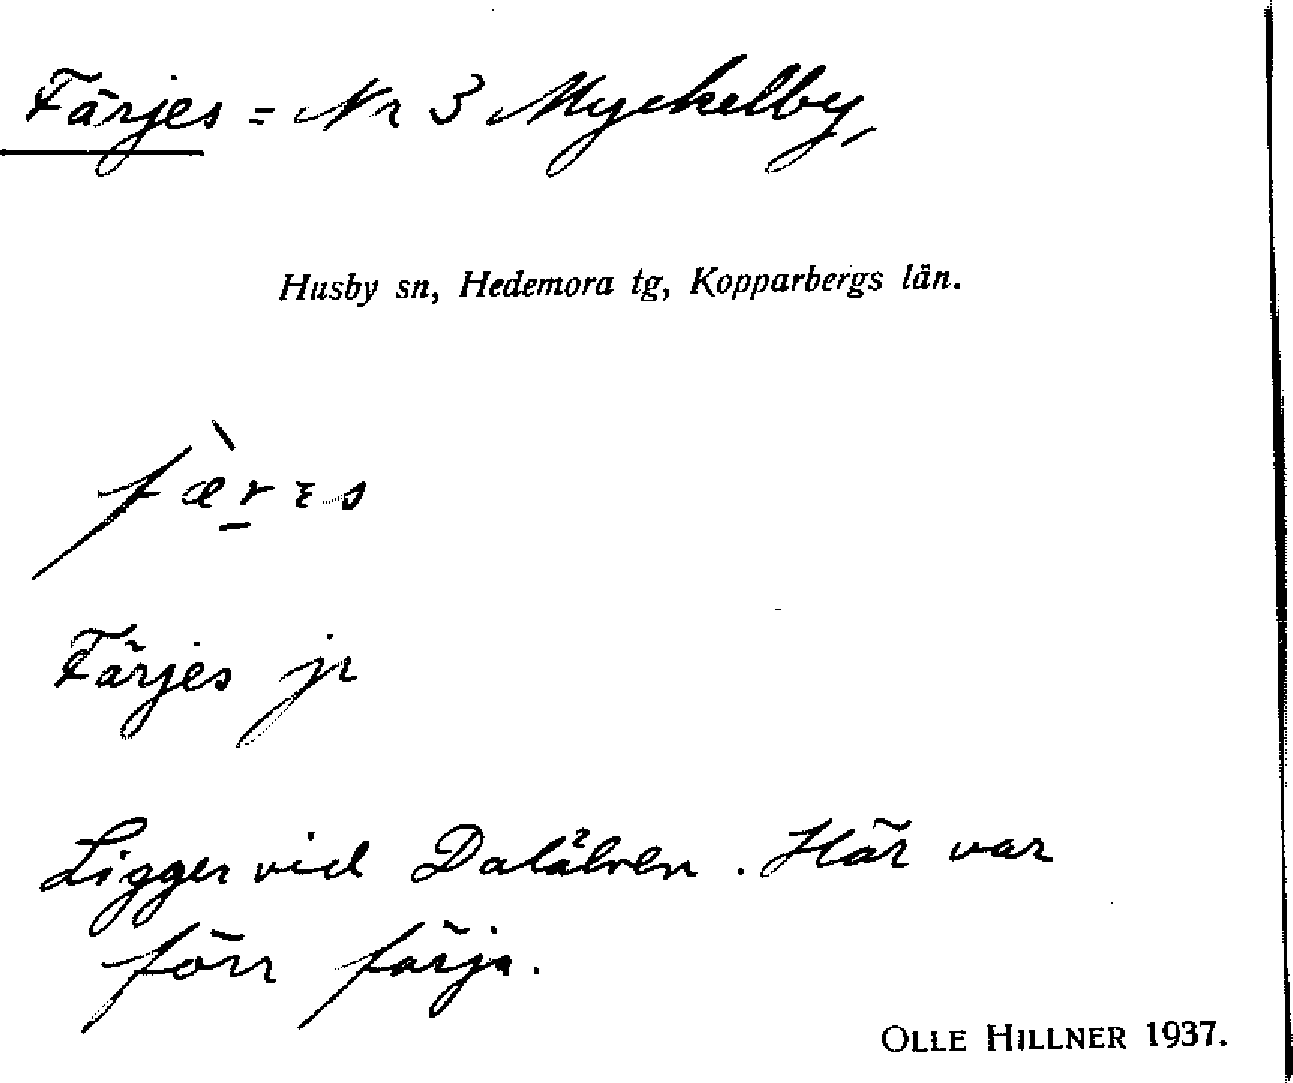 Färjes = Nr 3 Myckelby,
Husby sn, Hedemora tg, Kopparbergs län.
Färjes jr
Ligger vid Dalälven. Här var
förr färja.
OLLE HILLNER 1937.